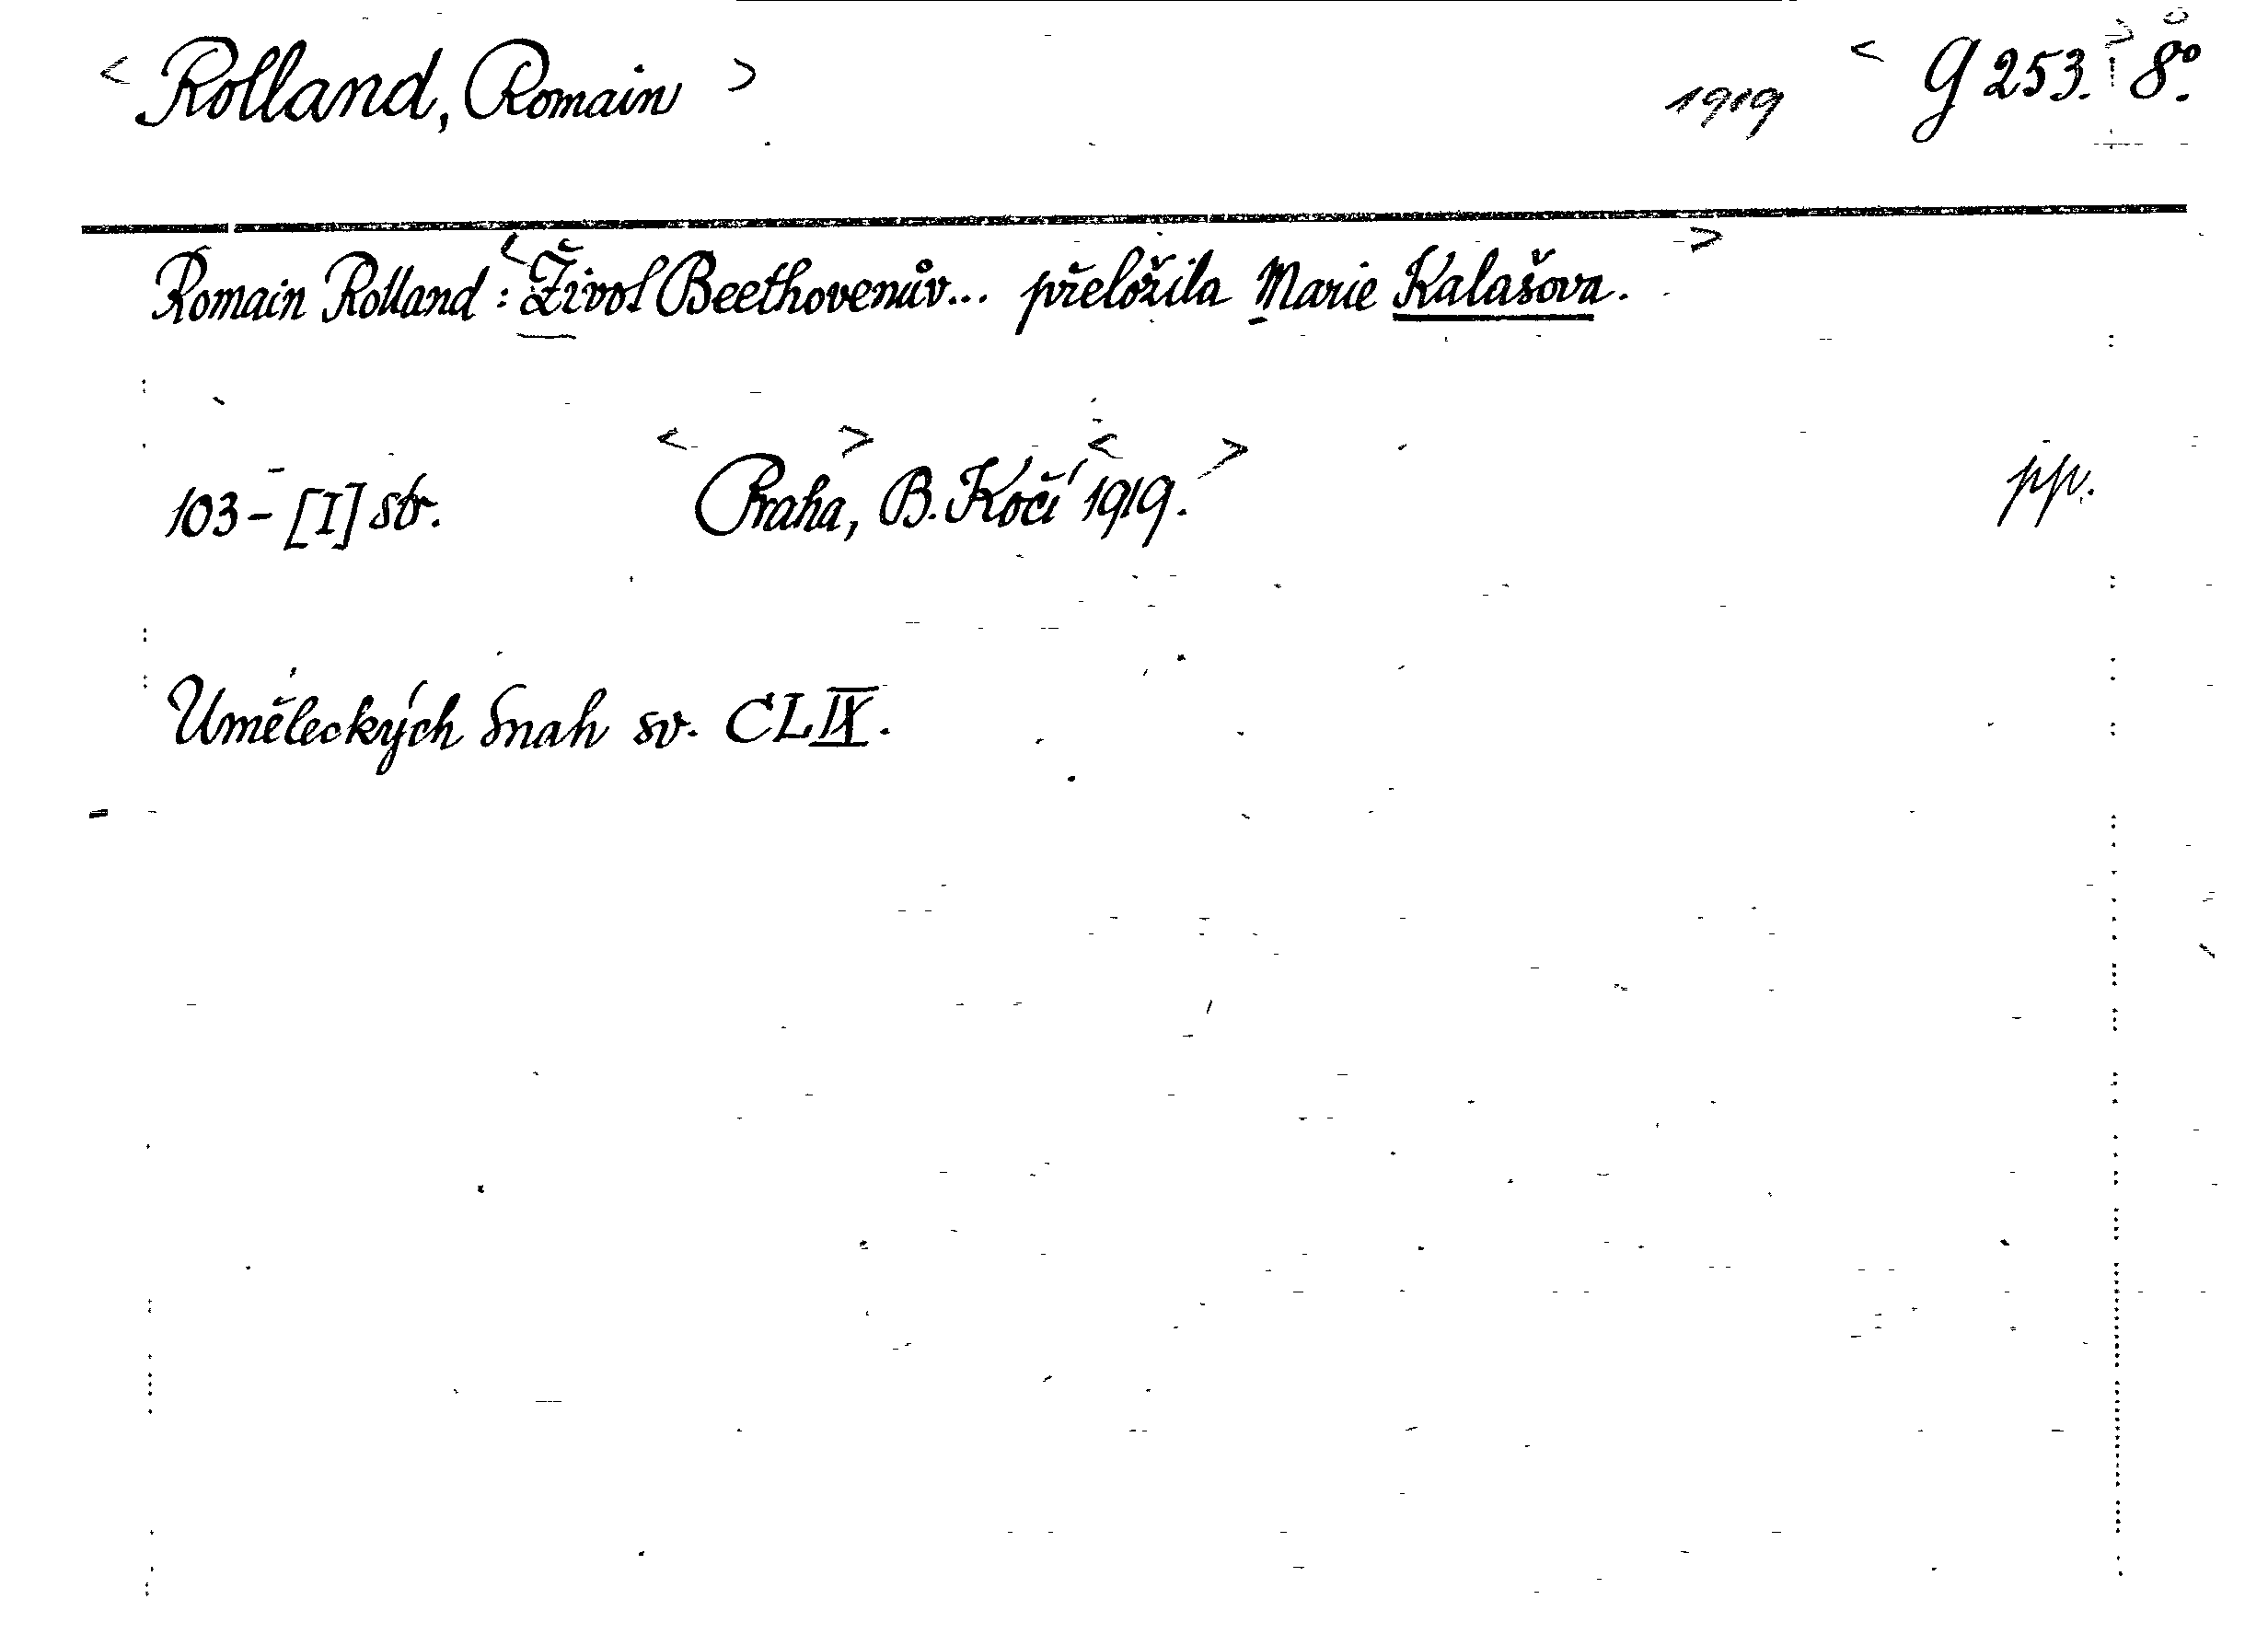 < Rolland, Romain > 1919 < G 253. > 8º.
Romain Rolland: <Život Beethovenův... přeložila Marie Kalašova. >
103 - [I] str. < Praha, > B. Kočí < 1919. > pp.
Uměleckých Snah sv. CLIX.